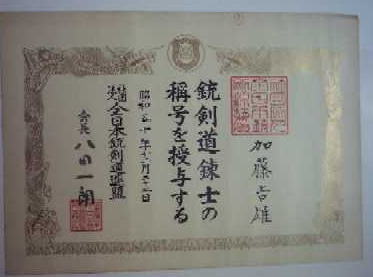 加藤吉雄
銃剣道錬士の
称号を授与する
昭和五十年十二月二十二日
社団法人全日本銃剣道連盟
会長八田一朗